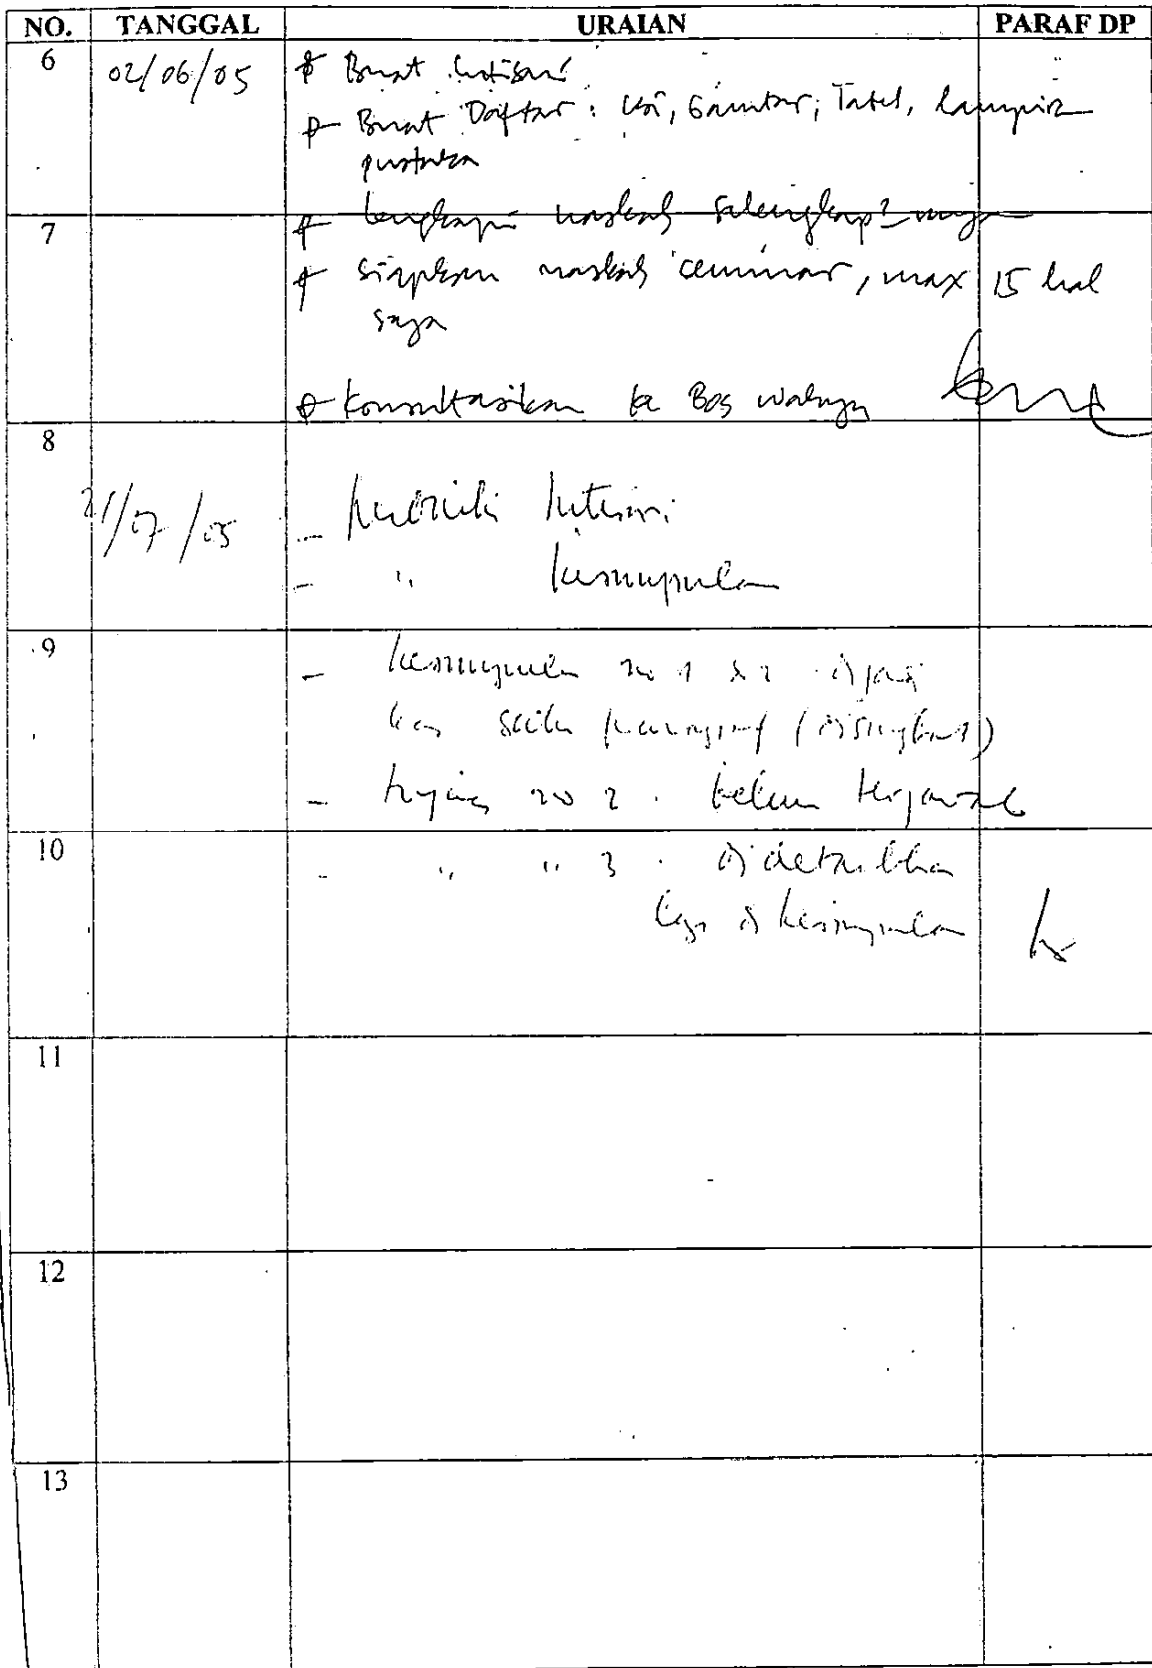 NO. TANGGAL URAIAN PARAF DP
6 02/06/05 Buat Intisari
Buat Daftar : Isi, Gambar, Tabel, Lampiran
pustaka
7 Lengkapi naskah selengkap2nya
Siapkan naskah seminar, max 15 hal
saja
Konsultasikan ke Bos
8
21/07/05 - Perbaiki Intisari
- " kesimpulan
9 - kesimpulan no 1 & 2
satu paragraf (disingkat)
- tujuan no 2 . belum terjawab
10 - " " 3 . didetailkan
lagi di kesimpulan
11
12
13